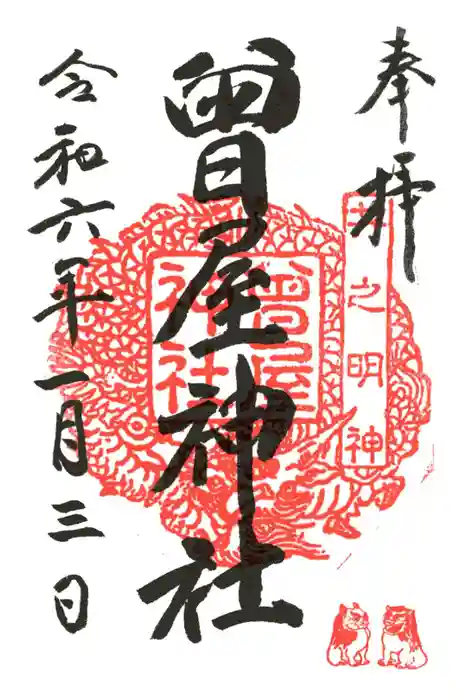 奉拝
之明神
曽屋神社
曽屋神社
令和六年一月三日